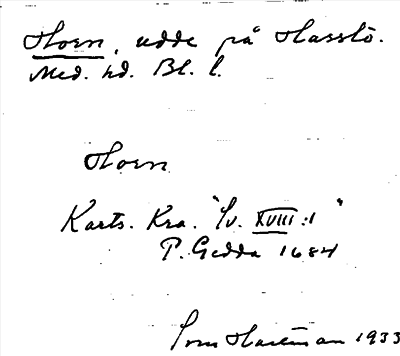 Horn, udde på Hasslö.
Med. hd. Bl. l.
Horn
Karts. Kra. "Sv. XVIII:1"
P. Gedda 1684
1933